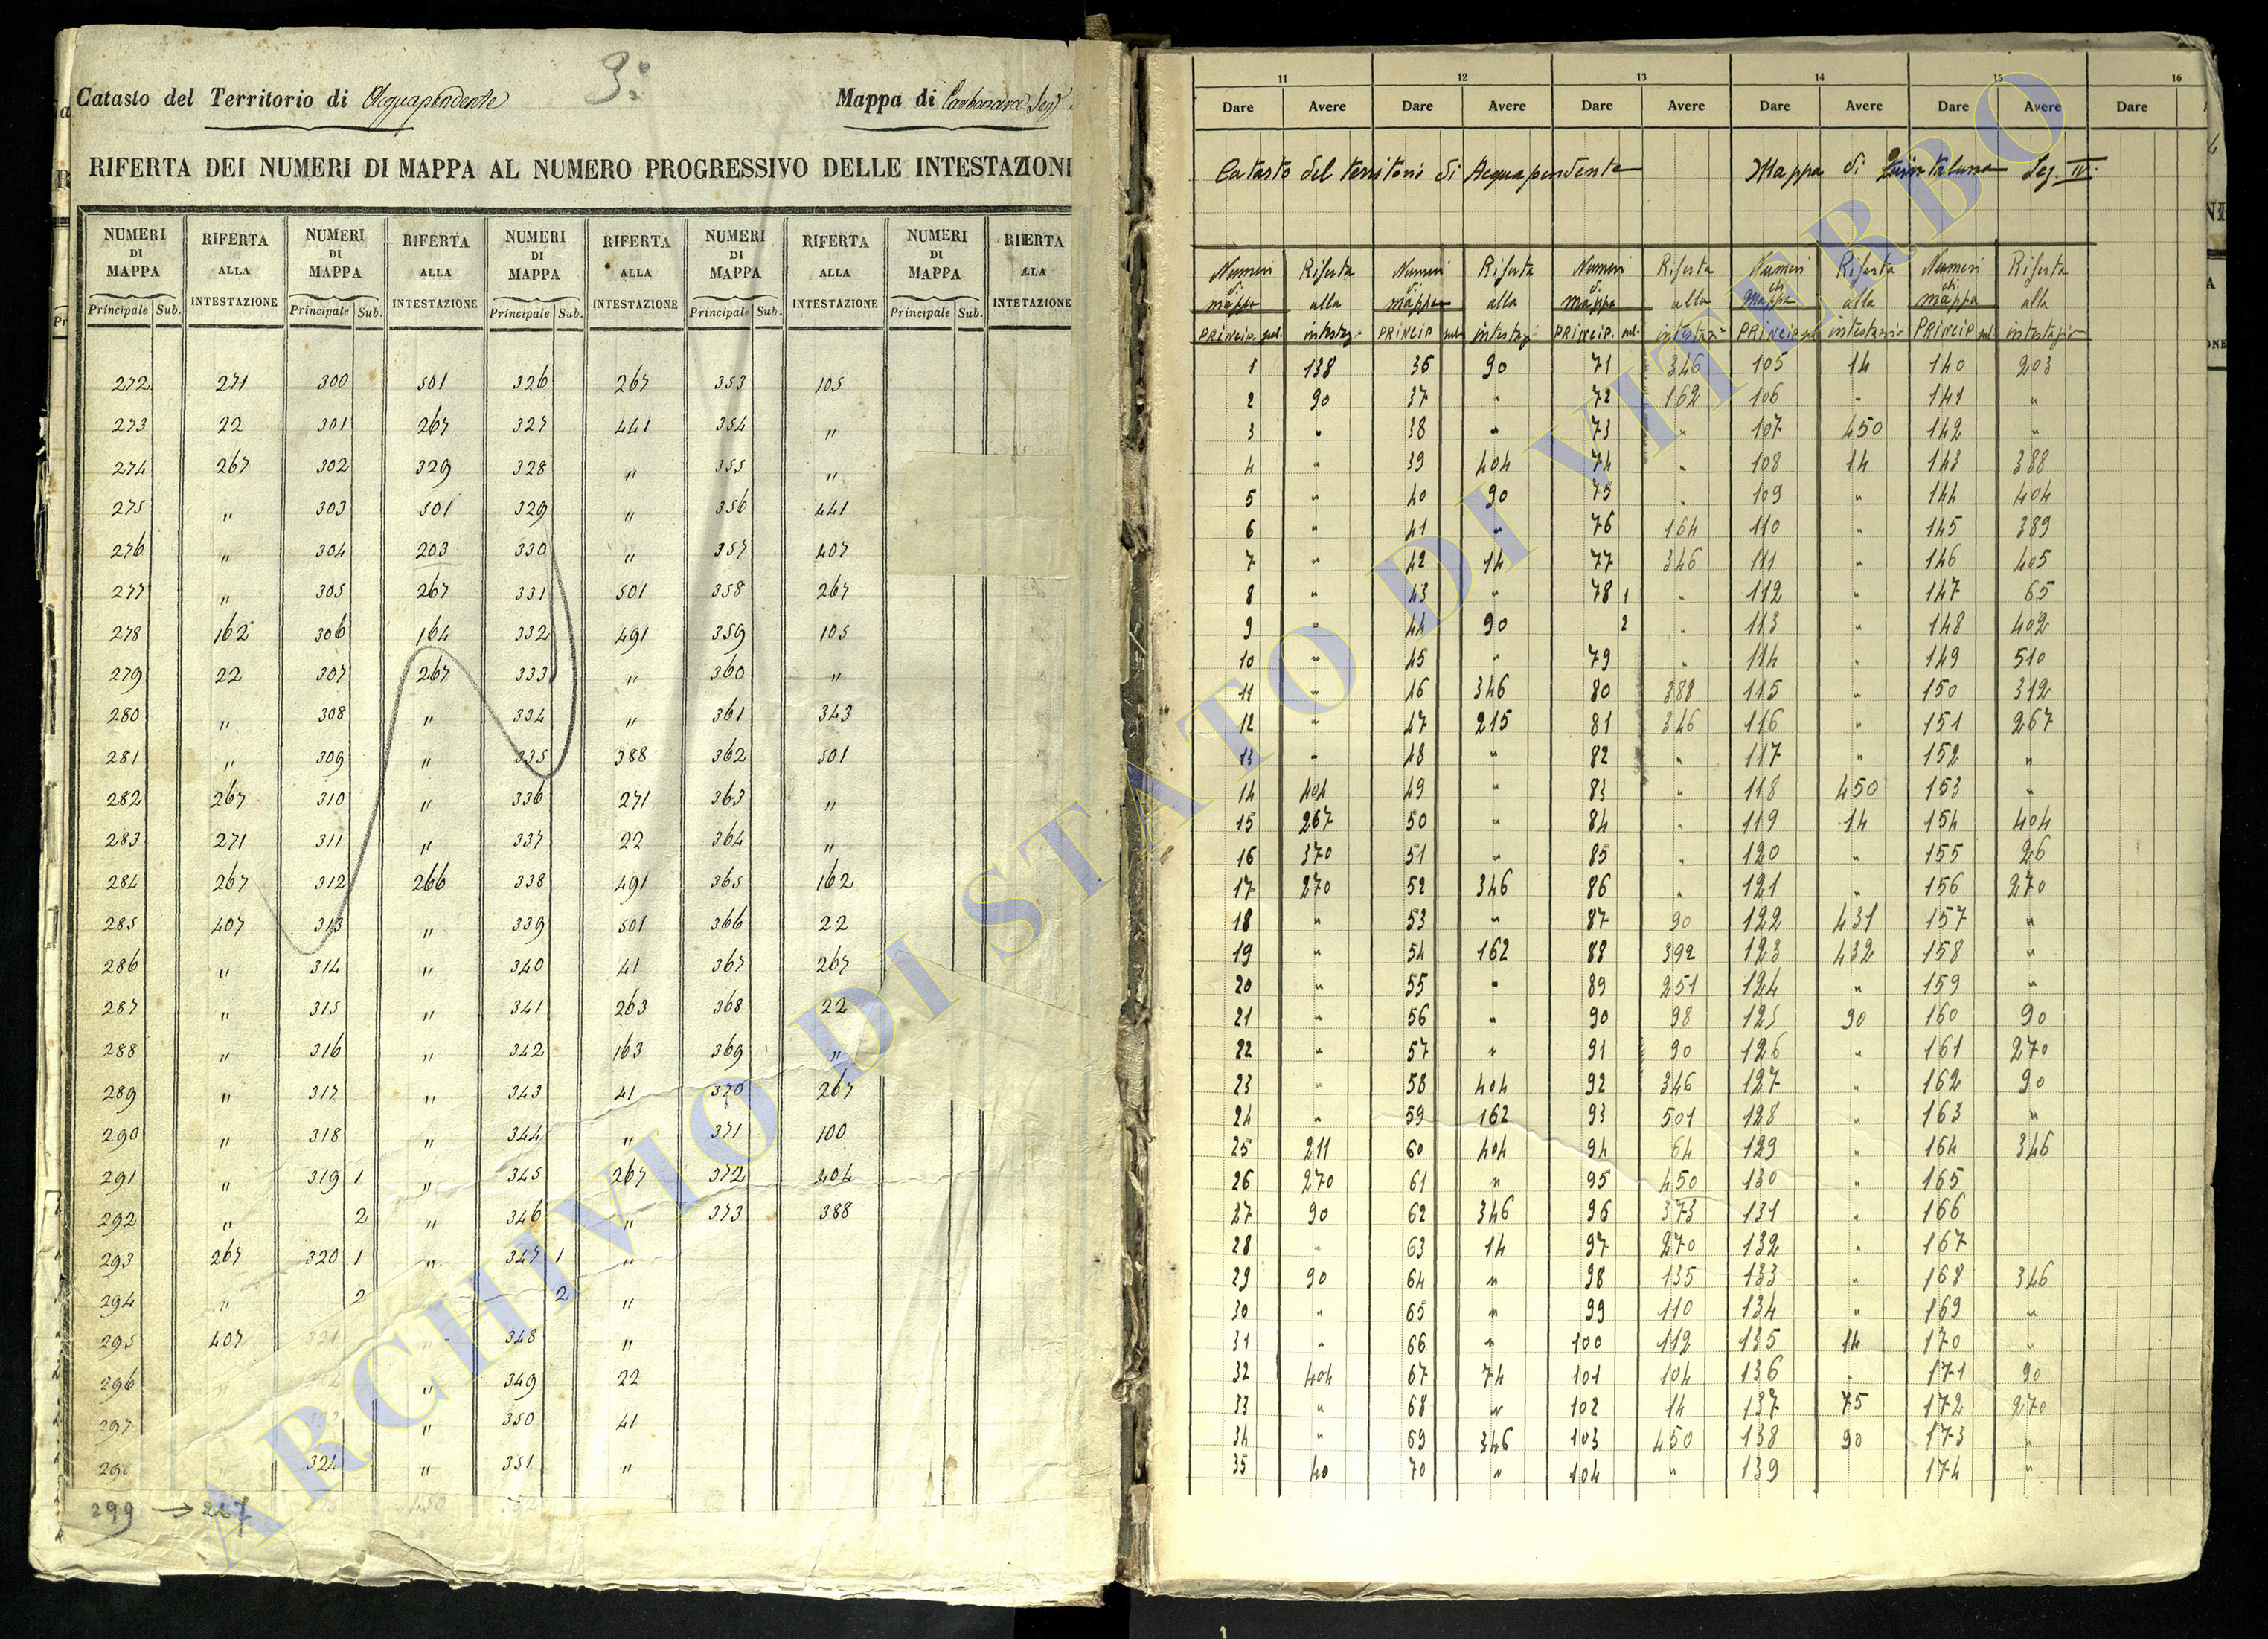 3:
Catasto del Territorio di Acquapendente Mappa di Carbonara Sez
RIFERTA DEI NUMERI DI MAPPA AL NUMERO PROGRESSIVO DELLE INTESTAZIONI
NUMERI DI MAPPA RIFERTA ALLA INTESTAZIONE NUMERI DI MAPPA RIFERTA ALLA INTESTAZIONE NUMERI DI MAPPA RIFERTA ALLA INTESTAZIONE NUMERI DI MAPPA RIFERTA ALLA INTESTAZIONE NUMERI DI MAPPA RIFERTA ALLA
Principale Sub. Principale Sub. Principale Sub. Principale Sub. Principale Sub.
272 271 300 501 326 267 353 105
273 22 301 267 327 441 354 "
274 267 302 329 328 " 355 "
275 " 303 501 329 " 356 441
276 " 304 203 330 " 357 407
277 " 305 267 331 501 358 267
278 162 306 164 332 491 359 105
279 22 307 267 333 " 360 "
280 " 308 " 334 " 361 343
281 " 309 " 335 388 362 501
282 267 310 " 336 271 363 "
283 271 311 " 337 22 364 "
284 267 312 266 338 491 365 162
285 407 313 " 339 501 366 22
286 " 314 " 340 41 367 267
287 " 315 " 341 263 368 22
288 " 316 " 342 163 369 "
289 " 317 " 343 41 370 267
290 " 318 " 344 " 371 100
291 " 319 1 " 345 267 372 404
292 " 2 " 346 " 373 388
293 267 320 1 " 347 1 "
294 " 2 2 "
295 407 321 " 348 "
296 " 349 22
297 " 350 41
324 " 351 "
299 → 267
11 12 13 14 15 16
Dare Avere Dare Avere Dare Avere Dare Avere Dare Avere Dare
Catasto del territorio di Acquapendente Mappa di Quintaluna Sez. IV.
Numeri di mappa Riferta alla intestaz. Numeri di mappa Riferta alla intestaz. Numeri di mappa Riferta alla intestaz. Numeri di Mappa Riferta alla intestazio Numeri di mappa Riferta alla intestazio
Princip. sub. Princip sub Princip. sub. Princip sub Princip sub.
1 138 36 90 71 346 105 14 140 203
2 90 37 " 72 162 106 " 141 "
3 " 38 " 73 " 107 450 142 "
4 " 39 404 74 " 108 14 143 388
5 " 40 90 75 " 109 " 144 404
6 " 41 " 76 164 110 " 145 389
7 " 42 14 77 346 111 " 146 405
8 " 43 " 78 1 " 112 " 147 65
9 " 44 90 2 " 113 " 148 402
10 " 45 " 79 " 114 " 149 510
11 " 46 346 80 388 115 " 150 312
12 " 47 215 81 346 116 " 151 267
13 " 48 " 82 " 117 " 152 "
14 404 49 " 83 " 118 450 153 "
15 267 50 " 84 " 119 14 154 404
16 370 51 " 85 " 120 " 155 26
17 270 52 346 86 " 121 " 156 270
18 " 53 " 87 90 122 431 157 "
19 " 54 162 88 392 123 432 158 "
20 " 55 " 89 251 124 " 159 "
21 " 56 " 90 98 125 90 160 90
22 " 57 " 91 90 126 " 161 270
23 " 58 404 92 346 127 " 162 90
24 " 59 162 93 501 128 " 163 "
25 211 60 404 94 64 129 " 164 346
26 270 61 " 95 450 130 " 165
27 90 62 346 96 373 131 " 166
28 " 63 14 97 270 132 " 167
29 90 64 " 98 135 133 " 168 346
30 " 65 " 99 110 134 " 169 "
31 " 66 " 100 112 135 14 170 "
32 404 67 74 101 104 136 " 171 90
33 " 68 " 102 14 137 75 172 270
34 " 69 346 103 450 138 90 173 "
35 40 70 " 104 " 139 174 "
ARCHIVIO DI STATO DI VITERBO